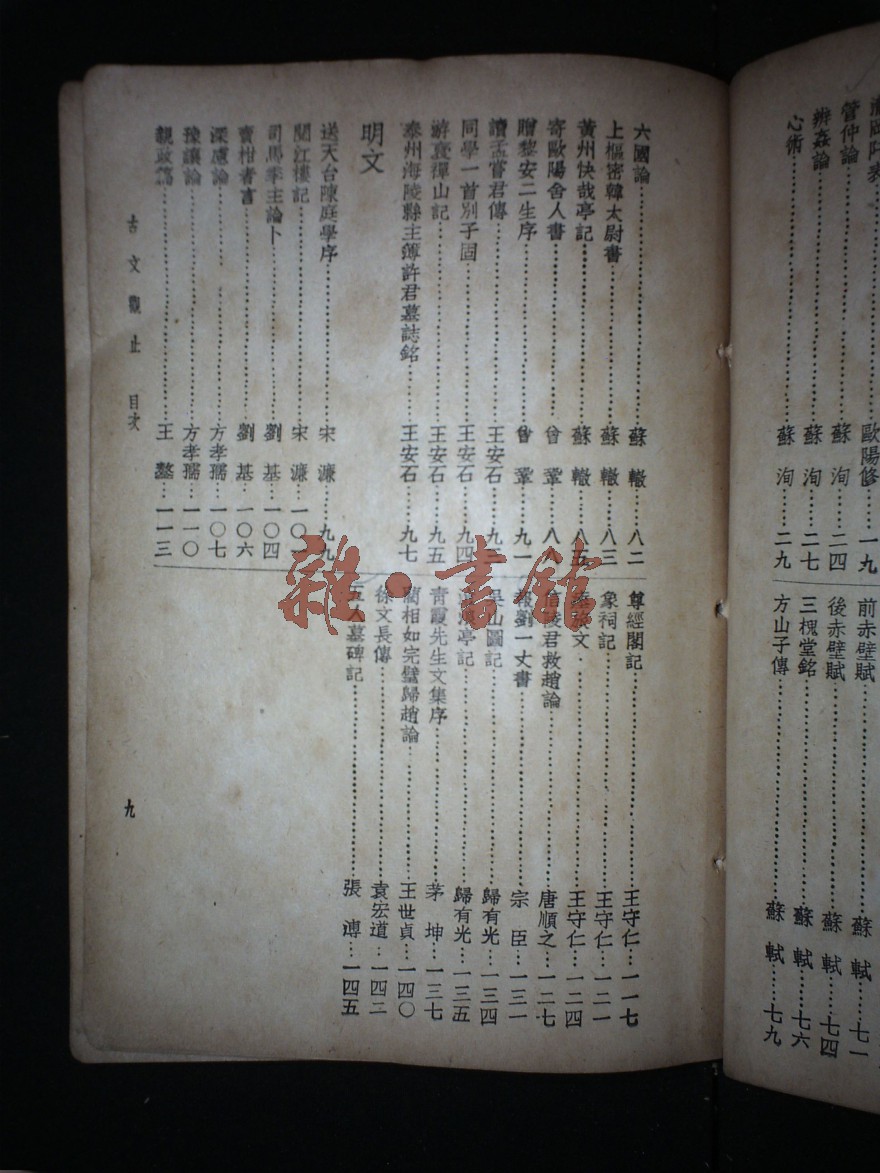 管仲論 蘇洵 二四
辨姦論 蘇洵 二七
心術 蘇洵 二九
歐陽修 一九
前赤壁賦 蘇軾 七一
後赤壁賦 蘇軾 七四
三槐堂銘 蘇軾 七六
方山子傳 蘇軾 七九
六國論 蘇轍 八二
上樞密韓太尉書 蘇轍 八三
黃州快哉亭記 蘇轍 八五
寄歐陽舍人書 曾鞏 八八
贈黎安二生序 曾鞏 九一
讀孟嘗君傳 王安石 九
同學一首別子固 王安石 九四
游褒禪山記 王安石 九五
泰州海陵縣主簿許君墓誌銘 王安石 九七
明文
送天台陳庭學序 宋濂 九九
閱江樓記 宋濂 一〇
司馬季主論卜 劉基 一〇四
賣柑者言 劉基 一〇六
深慮論 方孝孺 一〇七
豫讓論 方孝孺 一一〇
親政篇 王鏊 一一三
尊經閣記 王守仁 一一七
象祠記 王守仁 一二一
旅文 王守仁 一二四
陵君救趙論 唐順之 一二七
報劉一丈書 宗臣 一三一
山圖記 歸有光 一三四
亭記 歸有光 一三五
青霞先生文集序 茅坤 一三七
藺相如完璧歸趙論 王世貞 一四〇
徐文長傳 袁宏道 一四二
五人墓碑記 張溥 一四五
古文觀止 目次
九
雜·書館